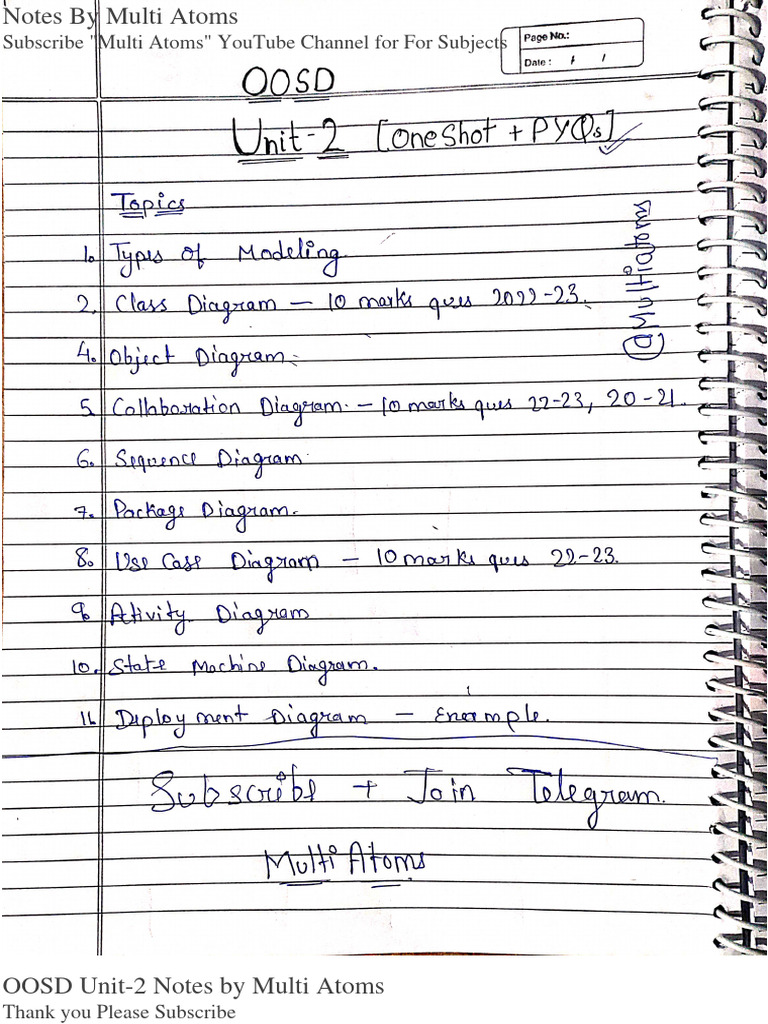 Notes By Multi Atoms
Subscribe "Multi Atoms" YouTube Channel for For Subjects
Page No.:
Date : / /
OOSD
Unit-2 [One Shot + PYQs]
Topics
1. Types of Modeling
2. Class Diagram — 10 marks ques 2022-23.
4. Object Diagram.
5. Collaboration Diagram. — 10 marks ques 22-23, 20-21.
6. Sequence Diagram
7. Package Diagram.
8. Use Case Diagram — 10 marks ques 22-23.
9. Ativity Diagram
10. State Machine Diagram.
11. Deployment Diagram — Enermple.
Subscribe + Join Telegram.
Multi Atoms
OOSD Unit-2 Notes by Multi Atoms
Thank you Please Subscribe